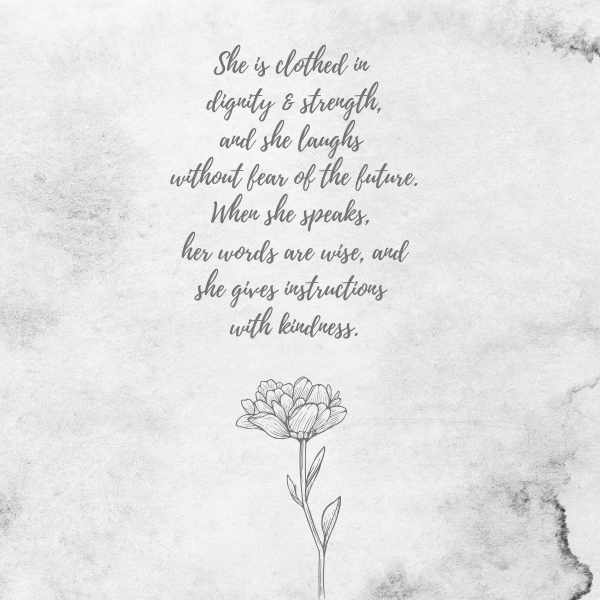 She is clothed in
dignity & strength,
and she laughs
without fear of the future.
When she speaks,
her words are wise, and
she gives instructions
with kindness.